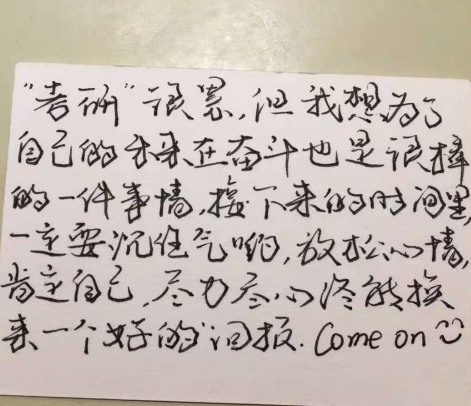 “考研”很累,但我想为了
自己的未来在奋斗也是很棒
的一件事情,接下来的时间里
一定要沉住气哟,放松心情,
肯定自己,尽力尽心终能换
来一个好的回报. Come on